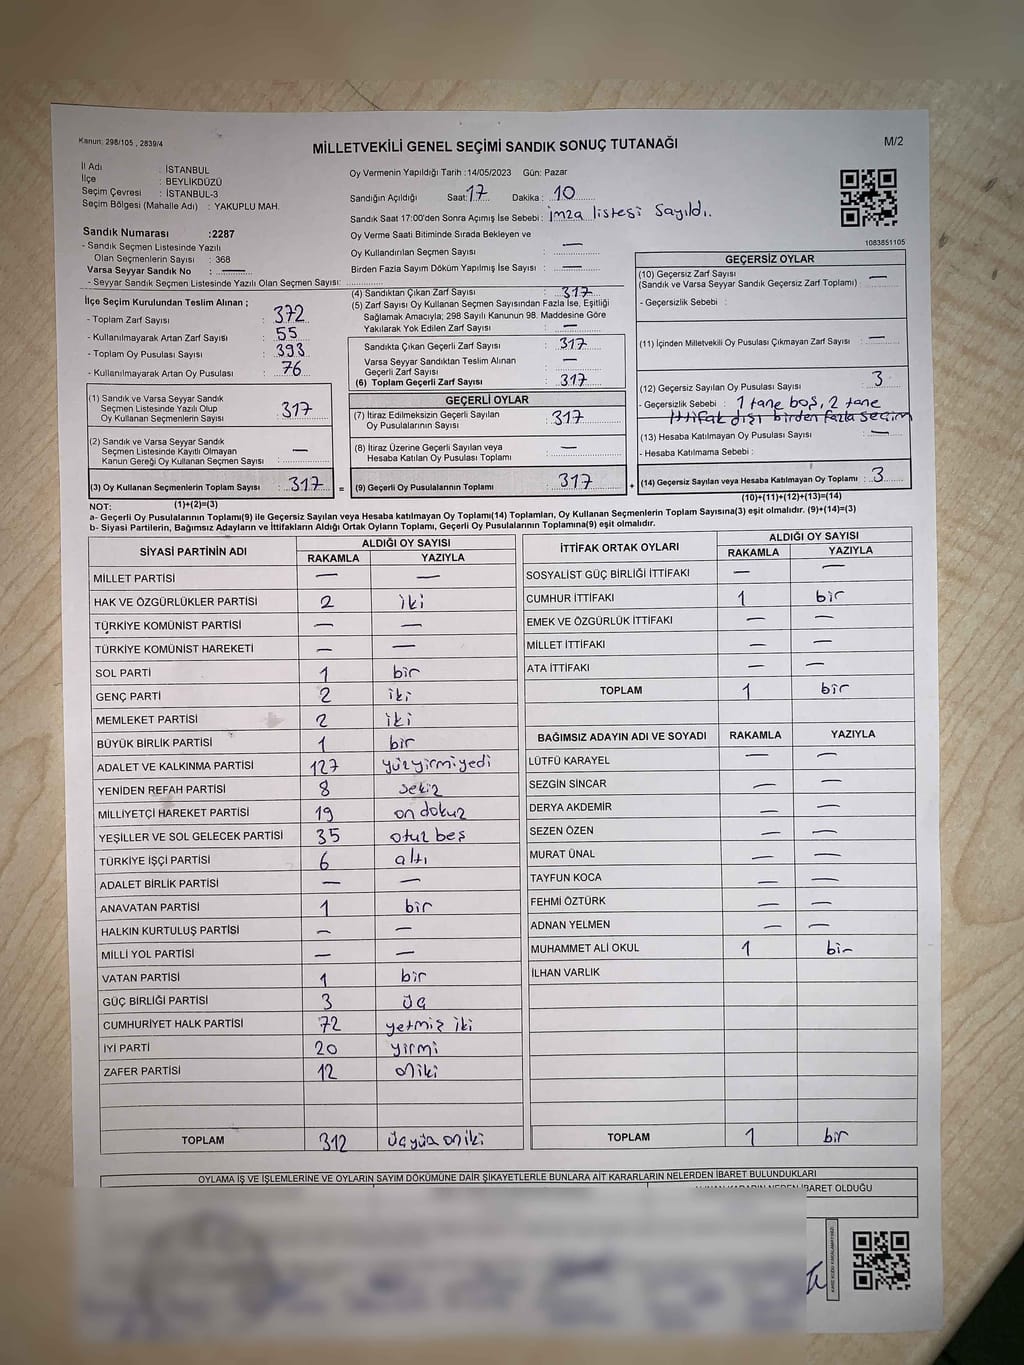 Kanun: 298/105 , 2839/4
MİLLETVEKİLİ GENEL SEÇİMİ SANDIK SONUÇ TUTANAĞI
M/2
İl Adı : İSTANBUL
İlçe : BEYLİKDÜZÜ
Seçim Çevresi : İSTANBUL-3
Seçim Bölgesi (Mahalle Adı) : YAKUPLU MAH.
Oy Vermenin Yapıldığı Tarih :14/05/2023 Gün: Pazar
Sandığın Açıldığı Saat: 17 Dakika : 10
Sandık Saat 17:00'den Sonra Açımış İse Sebebi : imza listesi sayıldı.
1083851105
Sandık Numarası :2287
- Sandık Seçmen Listesinde Yazılı
Olan Seçmenlerin Sayısı : 368
Varsa Seyyar Sandık No : —
- Seyyar Sandık Seçmen Listesinde Yazılı Olan Seçmen Sayısı:
Oy Verme Saati Bitiminde Sırada Bekleyen ve
Oy Kullandırılan Seçmen Sayısı : —
Birden Fazla Sayım Döküm Yapılmış İse Sayısı : —
İlçe Seçim Kurulundan Teslim Alınan ;
- Toplam Zarf Sayısı : 372
- Kullanılmayarak Artan Zarf Sayısı : 55
- Toplam Oy Pusulası Sayısı : 393
- Kullanılmayarak Artan Oy Pusulası : 76
(1) Sandık ve Varsa Seyyar Sandık
Seçmen Listesinde Yazılı Olup
Oy Kullanan Seçmenlerin Sayısı : 317
(2) Sandık ve Varsa Seyyar Sandık
Seçmen Listesinde Kayıtlı Olmayan
Kanun Gereği Oy Kullanan Seçmen Sayısı : —
(3) Oy Kullanan Seçmenlerin Toplam Sayısı : 317
(4) Sandıktan Çıkan Zarf Sayısı : 317
(5) Zarf Sayısı Oy Kullanan Seçmen Sayısından Fazla İse, Eşitliği
Sağlamak Amacıyla; 298 Sayılı Kanunun 98. Maddesine Göre
Yakılarak Yok Edilen Zarf Sayısı : —
Sandıkta Çıkan Geçerli Zarf Sayısı : 317
Varsa Seyyar Sandıktan Teslim Alınan
Geçerli Zarf Sayısı : —
(6) Toplam Geçerli Zarf Sayısı : 317
GEÇERLİ OYLAR
(7) İtiraz Edilmeksizin Geçerli Sayılan
Oy Pusulalarının Sayısı : 317
(8) İtiraz Üzerine Geçerli Sayılan veya
Hesaba Katılan Oy Pusulası Toplamı : —
= (9) Geçerli Oy Pusulalarının Toplamı : 317
GEÇERSİZ OYLAR
(10) Geçersiz Zarf Sayısı
(Sandık ve Varsa Seyyar Sandık Geçersiz Zarf Toplamı) : —
- Geçersizlik Sebebi :
(11) İçinden Milletvekili Oy Pusulası Çıkmayan Zarf Sayısı : —
(12) Geçersiz Sayılan Oy Pusulası Sayısı : 3
- Geçersizlik Sebebi : 1 tane boş, 2 tane
ittifak dışı birden fazla seçim
(13) Hesaba Katılmayan Oy Pusulası Sayısı : —
- Hesaba Katılmama Sebebi :
+ (14) Geçersiz Sayılan veya Hesaba Katılmayan Oy Toplamı : 3
NOT: (1)+(2)=(3)
(10)+(11)+(12)+(13)=(14)
a- Geçerli Oy Pusulalarının Toplamı(9) ile Geçersiz Sayılan veya Hesaba katılmayan Oy Toplamı(14) Toplamları, Oy Kullanan Seçmenlerin Toplam Sayısına(3) eşit olmalıdır. (9)+(14)=(3)
b- Siyasi Partilerin, Bağımsız Adayların ve İttifakların Aldığı Ortak Oyların Toplamı, Geçerli Oy Pusulalarının Toplamına(9) eşit olmalıdır.
SİYASİ PARTİNİN ADI ALDIĞI OY SAYISI
RAKAMLA YAZIYLA
MİLLET PARTİSİ — —
HAK VE ÖZGÜRLÜKLER PARTİSİ 2 iki
TÜRKİYE KOMÜNİST PARTİSİ — —
TÜRKİYE KOMÜNİST HAREKETİ — —
SOL PARTİ 1 bir
GENÇ PARTİ 2 iki
MEMLEKET PARTİSİ 2 iki
BÜYÜK BİRLİK PARTİSİ 1 bir
ADALET VE KALKINMA PARTİSİ 127 yüzyirmiyedi
YENİDEN REFAH PARTİSİ 8 sekiz
MİLLİYETÇİ HAREKET PARTİSİ 19 on dokuz
YEŞİLLER VE SOL GELECEK PARTİSİ 35 otuz beş
TÜRKİYE İŞÇİ PARTİSİ 6 altı
ADALET BİRLİK PARTİSİ — —
ANAVATAN PARTİSİ 1 bir
HALKIN KURTULUŞ PARTİSİ — —
MİLLİ YOL PARTİSİ — —
VATAN PARTİSİ 1 bir
GÜÇ BİRLİĞİ PARTİSİ 3 üç
CUMHURİYET HALK PARTİSİ 72 yetmiş iki
İYİ PARTİ 20 yirmi
ZAFER PARTİSİ 12 oniki
TOPLAM 312 üçyüz oniki
İTTİFAK ORTAK OYLARI ALDIĞI OY SAYISI
RAKAMLA YAZIYLA
SOSYALİST GÜÇ BİRLİĞİ İTTİFAKI — —
CUMHUR İTTİFAKI 1 bir
EMEK VE ÖZGÜRLÜK İTTİFAKI — —
MİLLET İTTİFAKI — —
ATA İTTİFAKI — —
TOPLAM 1 bir
BAĞIMSIZ ADAYIN ADI VE SOYADI RAKAMLA YAZIYLA
LÜTFÜ KARAYEL — —
SEZGİN SİNCAR — —
DERYA AKDEMİR — —
SEZEN ÖZEN — —
MURAT ÜNAL — —
TAYFUN KOCA — —
FEHMİ ÖZTÜRK — —
ADNAN YELMEN — —
MUHAMMET ALİ OKUL 1 bir
İLHAN VARLIK
TOPLAM 1 bir
OYLAMA İŞ VE İŞLEMLERİNE VE OYLARIN SAYIM DÖKÜMÜNE DAİR ŞİKAYETLERLE BUNLARA AİT KARARLARIN NELERDEN İBARET BULUNDUKLARI
İBARET OLDUĞU